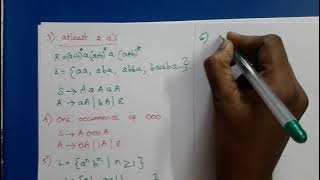 3) atleast 2 a's
R = (a+b)* a (a+b)* a (a+b)*
L = { aa, aba, abba, baaba
S → A a A a A
A → aA | bA | ε
4) One occurrence of 000
S → A 000 A
A → 0A | 1A | ε
5) L = { aⁿ bⁿ | n ≥ 1 }
6)